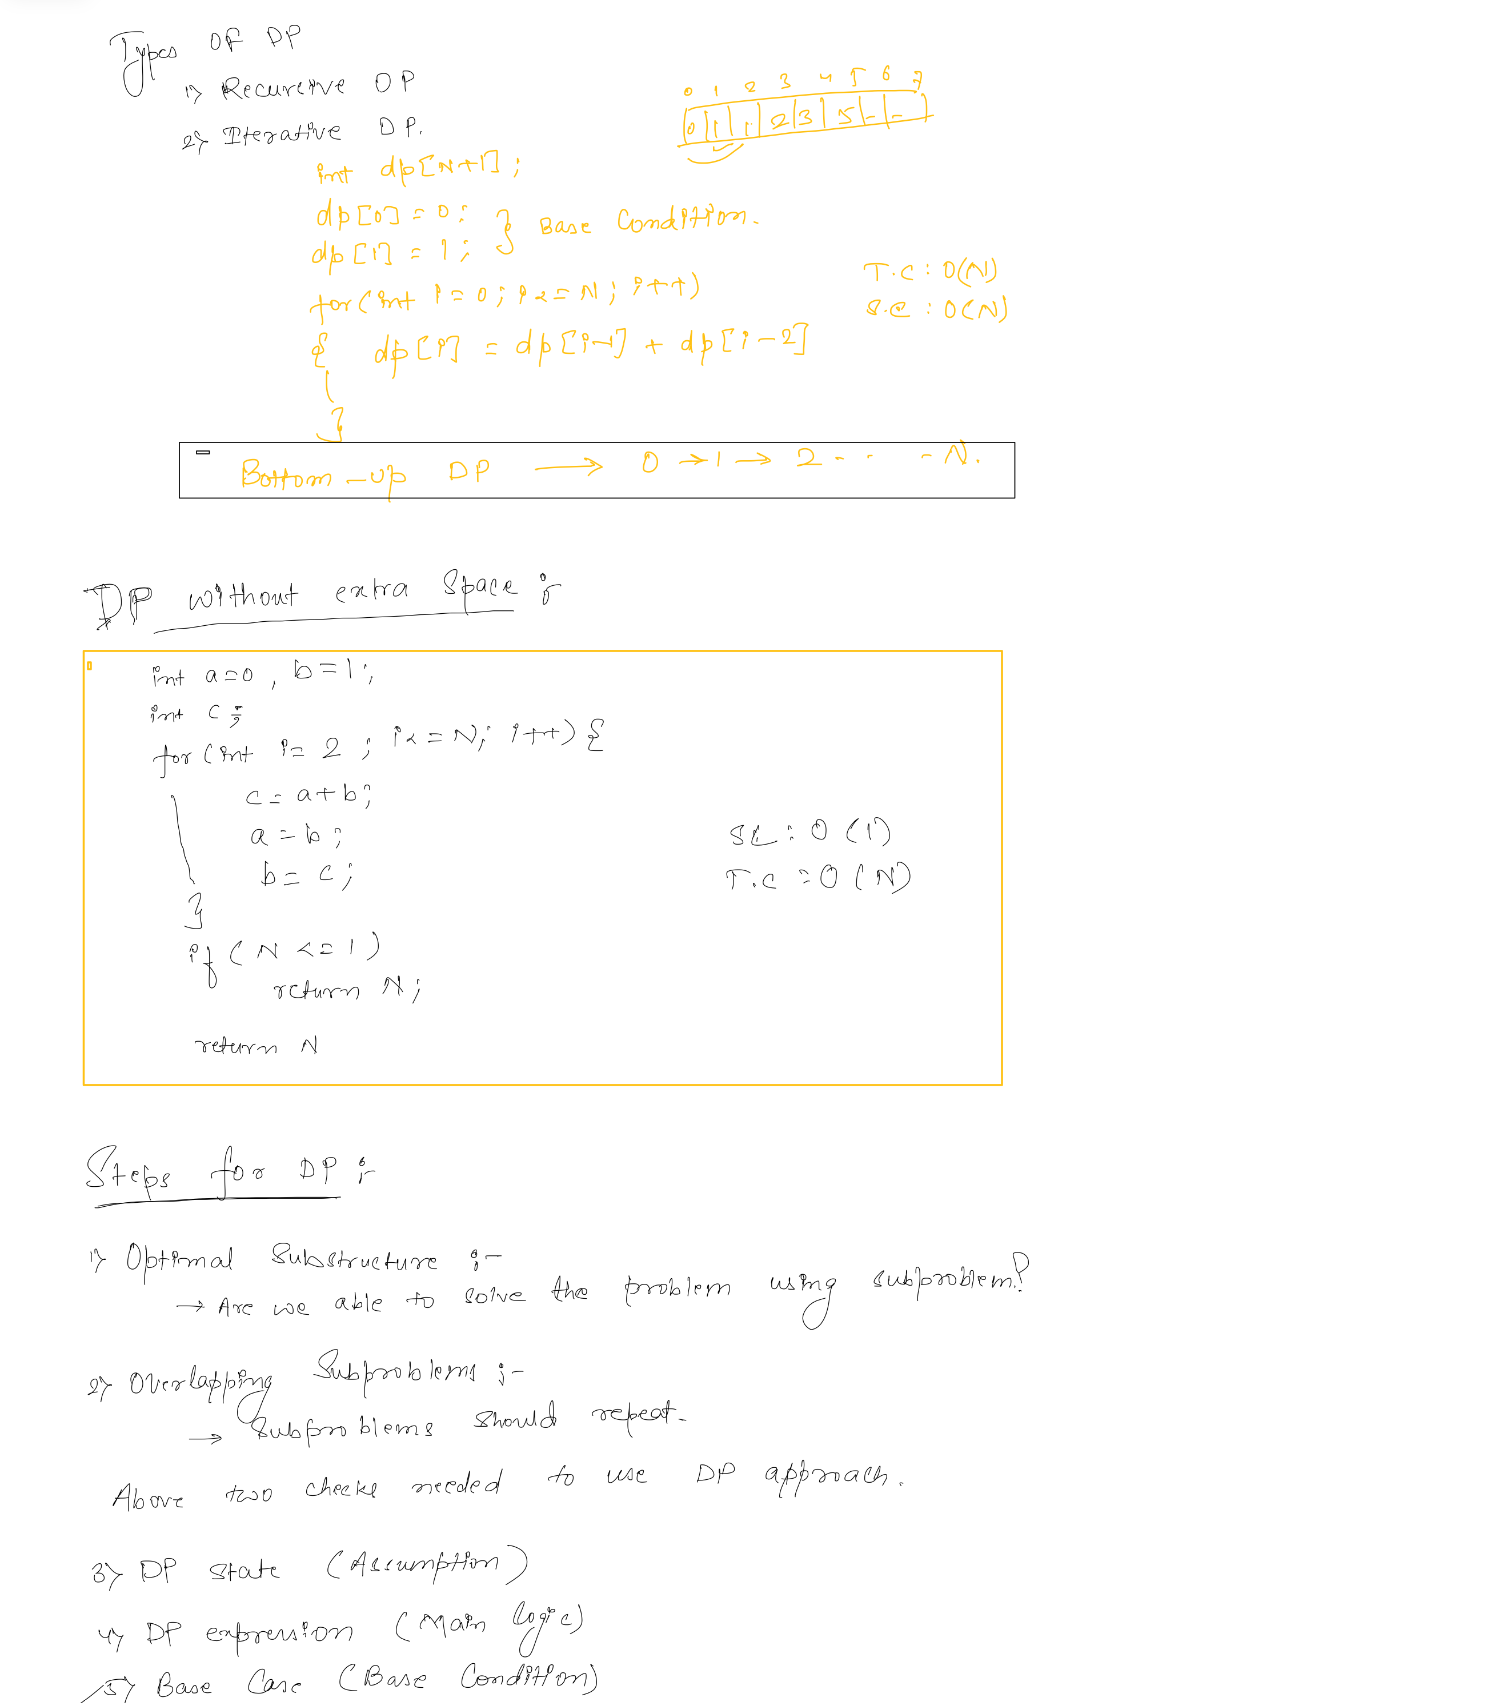 Types OF DP
1) Recursive DP
2) Iterative DP.
0 1 2 3 4 5 6 7
0 | 1 | 1 | 2 | 3 | 5 | - | -
int dp[N+1];
dp[0] = 0;
dp[1] = 1; } Base Condition.
for(int i=0; i<=N; i++)
{ dp[i] = dp[i-1] + dp[i-2]
}
T.C : O(N)
S.C : O(N)
Bottom-up DP → 0 → 1 → 2 - - - N.
DP without extra Space :-
int a=0, b=1;
int c;
for(int i=2; i<=N; i++){
c = a+b;
a = b;
b = c;
}
SC : O(1)
T.C : O(N)
if(N <= 1)
return N;
return N
Steps for DP :-
1) Optimal Substructure :-
→ Are we able to solve the problem using subproblem?
2) Overlapping Subproblems :-
→ Subproblems should repeat.
Above two checks needed to use DP approach.
3) DP state (Assumption)
4) DP expression (Main logic)
5) Base Case (Base Condition)